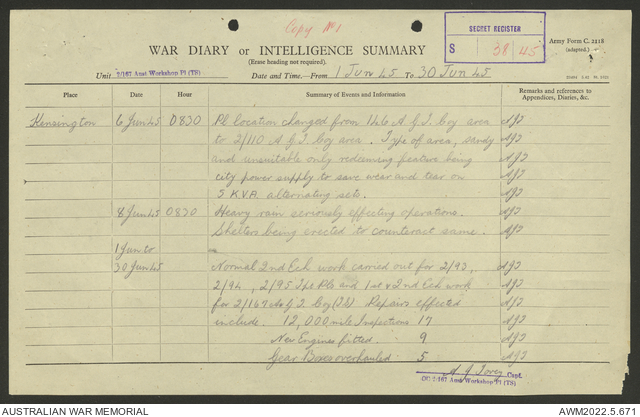 Copy No 1
SECRET REGISTER
S 38/45
Army Form C. 2118
(adapted.)
WAR DIARY or INTELLIGENCE SUMMARY
(Erase heading not required).
Unit 2/167 Amt Workshop Pl (TS) Date and Time.—From 1 Jun 45 to 30 Jun 45
Place Date Hour Summary of Events and Information Remarks and references to
Appendices, Diaries, &c.
Kensington 6 Jun 45 0830 Pl location changed from 146 A.G.T. Coy area AJJ
to 2/110 A.G.T. Coy area. Type of area, sandy AJJ
and unsuitable only redeeming feature being AJJ
city power supply to save wear and tear on AJJ
5 K.V.A. alternating sets. AJJ
8 Jun 45 0830 Heavy rain seriously effecting operations. AJJ
Shelters being erected to counteract same. AJJ
1 Jun to
30 Jun 45 Normal 2nd Ech work carried out for 2/93, AJJ
2/94, 2/95 Tpt Pls and 1st & 2nd Ech work AJJ
for 2/167 A G T Coy (TS) Repairs effected AJJ
include. 12,000 mile Inspections 17 AJJ
New Engines fitted. 9 AJJ
Gear Boxes overhauled 5 AJJ
Capt.
OC 2/167 Amt Workshop Pl (TS)
AUSTRALIAN WAR MEMORIAL AWM2022.5.671